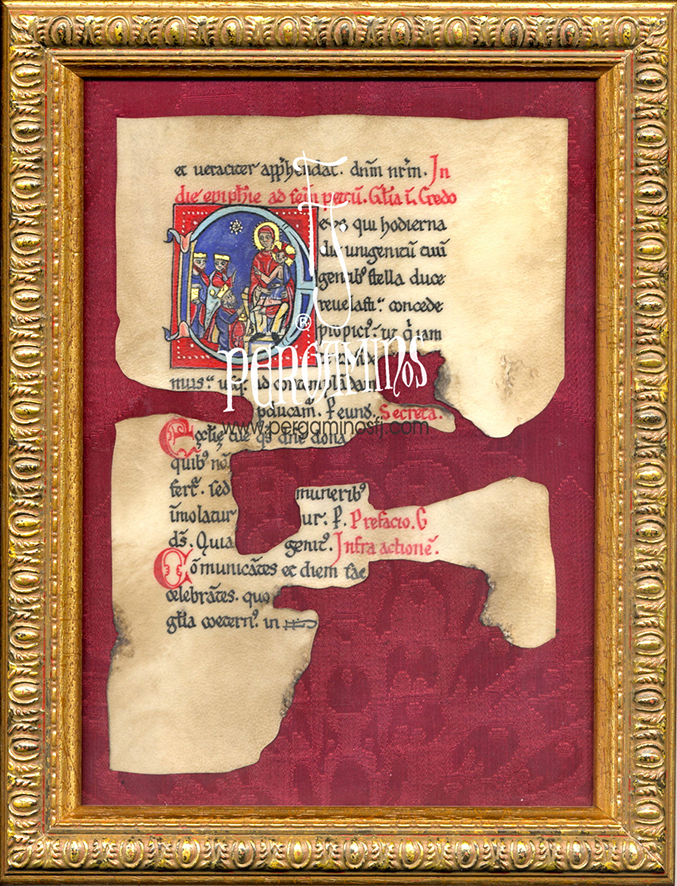 et veraciter app̄hendat. dn̄m nr̄m. In
die epiphīe ad
Gl̄ia ī. Credo
eus qui hodierna
die unigenitū tuū
gentibꝰ stella duce
revelasti concede
propiciꝰ. ut
ad contemplādam
ꝑducam̄. P eund. Secreta.
Ecclīe tue qs̄ dn̄e dona
quibꝰ no
fert. sed muneribꝰ
īmolatur ur. P. Prefacio. G
ds̄. Quia genitꝰ. Infra actionē.
Cōmunicātes et diem sac
celebrātes. quo
gl̄ia coeternꝰ. in
TJ
®
PERGAMINOS
www.pergaminostj.com